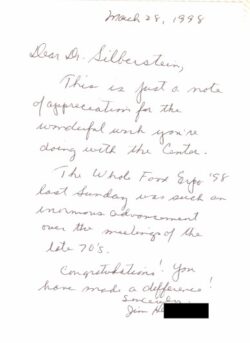 March 28, 1998
Dear Dr. Silberstein,
This is just a note
of appreciation for the
wonderful work you're
doing with the Center.
The Whole Food Expo '98
last Sunday was such an
inormous advancement
over the meetings of the
late 70's.
Congratulations! You
have made a difference!
Sincerely,
Jim